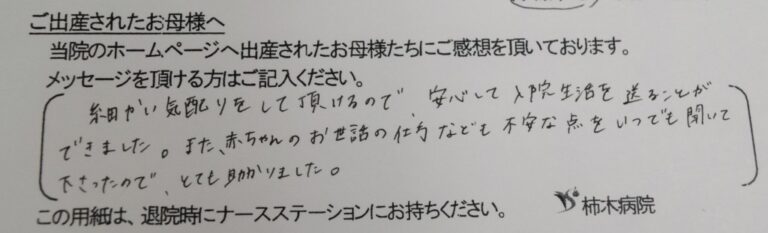 ご出産されたお母様へ
当院のホームページへ出産されたお母様たちにご感想を頂いております。
メッセージを頂ける方はご記入ください。
細かい気配りをして頂けるので、安心して入院生活を送ることが
できました。また、赤ちゃんのお世話の仕方なども不安な点をいつでも聞いて
下さったので、とても助かりました。
この用紙は、退院時にナースステーションにお持ちください。
柿木病院